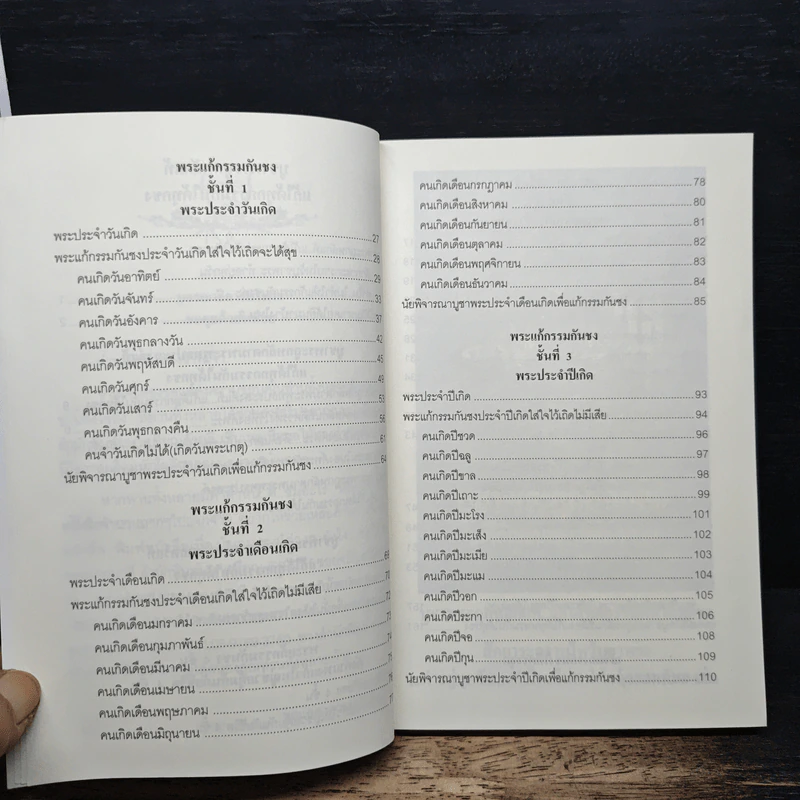 พระแก้กรรมกันชง
ชั้นที่ 1
พระประจำวันเกิด
พระประจำวันเกิด 27
พระแก้กรรมกันชงประจำวันเกิดใส่ใจไว้เถิดจะได้สุข 28
คนเกิดวันอาทิตย์ 29
คนเกิดวันจันทร์ 33
คนเกิดวันอังคาร 37
คนเกิดวันพุธกลางวัน 42
คนเกิดวันพฤหัสบดี 45
คนเกิดวันศุกร์ 49
คนเกิดวันเสาร์ 53
คนเกิดวันพุธกลางคืน 56
คนจำวันเกิดไม่ได้(เกิดวันพระเกตุ) 61
นัยพิจารณาบูชาพระประจำวันเกิดเพื่อแก้กรรมกันชง 64
พระแก้กรรมกันชง
ชั้นที่ 2
พระประจำเดือนเกิด
พระประจำเดือนเกิด
พระแก้กรรมกันชงประจำเดือนเกิดใส่ใจไว้เถิดไม่มีเสีย
คนเกิดเดือนมกราคม
คนเกิดเดือนกุมภาพันธ์
คนเกิดเดือนมีนาคม
คนเกิดเดือนเมษายน
คนเกิดเดือนพฤษภาคม
คนเกิดเดือนมิถุนายน
คนเกิดเดือนกรกฎาคม 78
คนเกิดเดือนสิงหาคม 80
คนเกิดเดือนกันยายน 81
คนเกิดเดือนตุลาคม 82
คนเกิดเดือนพฤศจิกายน 83
คนเกิดเดือนธันวาคม 84
นัยพิจารณาบูชาพระประจำเดือนเกิดเพื่อแก้กรรมกันชง 85
พระแก้กรรมกันชง
ชั้นที่ 3
พระประจำปีเกิด
พระประจำปีเกิด 93
พระแก้กรรมกันชงประจำปีเกิดใส่ใจไว้เถิดไม่มีเสีย 94
คนเกิดปีชวด 96
คนเกิดปีฉลู 97
คนเกิดปีขาล 98
คนเกิดปีเถาะ 99
คนเกิดปีมะโรง 101
คนเกิดปีมะเส็ง 102
คนเกิดปีมะเมีย 103
คนเกิดปีมะแม 104
คนเกิดปีวอก 105
คนเกิดปีระกา 106
คนเกิดปีจอ 108
คนเกิดปีกุน 109
นัยพิจารณาบูชาพระประจำปีเกิดเพื่อแก้กรรมกันชง 110